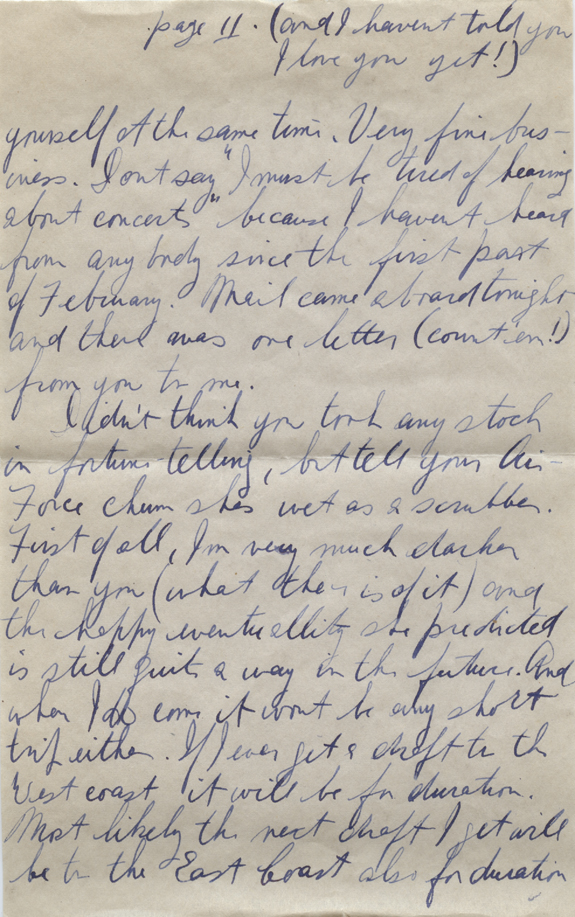 page 11. (and I havent told you
I love you yet!)
yourself at the same time. Very fine bus-
iness. Dont say "I must be tired of hearing
about concerts" because I havent heard
from any body since the first part
of February. Mail came aboard tonight
and there was one letter (count em!)
from you to me.
I didn't think you took any stock
in fortune-telling, but tell your Air-
Force chum she's wet as a scrubber.
First of all, I'm very much darker
than you (what ther is of it) and
the happy eventuallity she predicted
is still quite a way in the future. And
when I do come it wont be any short
trip either. If I ever get a draft to the
West coast it will be for duration.
Most likely the next draft I get will
be to the East Coast also for duration